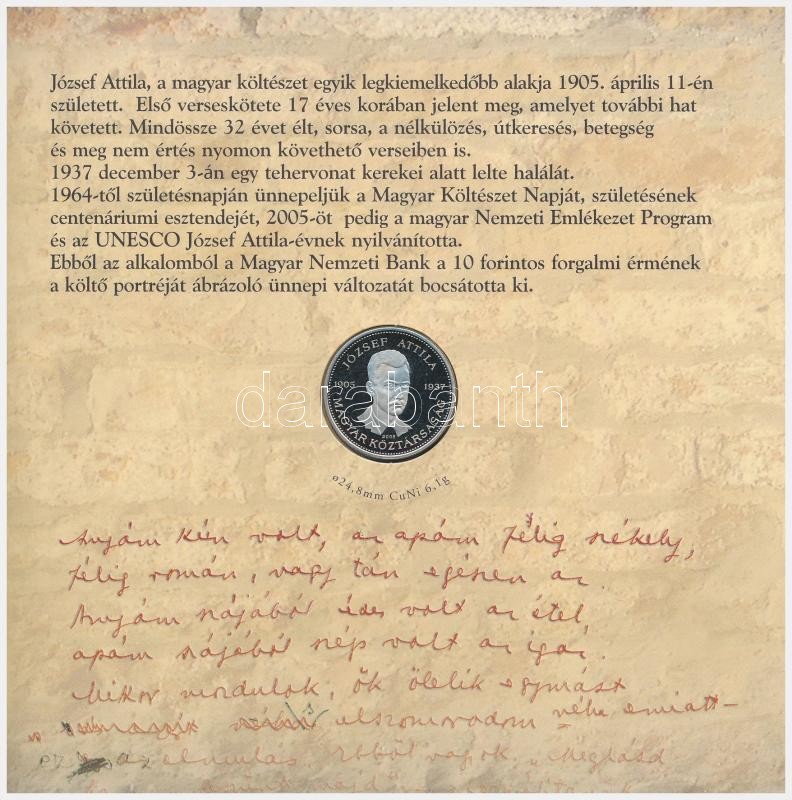 József Attila, a magyar költészet egyik legkiemelkedőbb alakja 1905. április 11-én
született.  Első verseskötete 17 éves korában jelent meg, amelyet további hat
követett. Mindössze 32 évet élt, sorsa, a nélkülözés, útkeresés, betegség
és meg nem értés nyomon követhető verseiben is.
1937 december 3-án egy tehervonat kerekei alatt lelte halálát.
1964-től születésnapján ünnepeljük a Magyar Költészet Napját, születésének
centenáriumi esztendejét, 2005-öt  pedig a magyar Nemzeti Emlékezet Program
és az UNESCO József Attila-évnek nyilvánította.
Ebből az alkalomból a Magyar Nemzeti Bank a 10 forintos forgalmi érmének
a költő portréját ábrázoló ünnepi változatát bocsátotta ki.
JÓZSEF ATTILA
1905 1937
2005
MAGYAR KÖZTÁRSASÁG
darabanth
ø24,8mm CuNi 6,1g
Anyám kún volt, az apám félig székely,
félig román, vagy tán egészen az.
Anyám szájából édes volt az étel,
apám szájából szép volt az igaz.
Mikor mozdulok, ők ölelik egymást
elszomorodom néha emiatt –
ez az elmulás. Ebből vagyok. „Meglásd